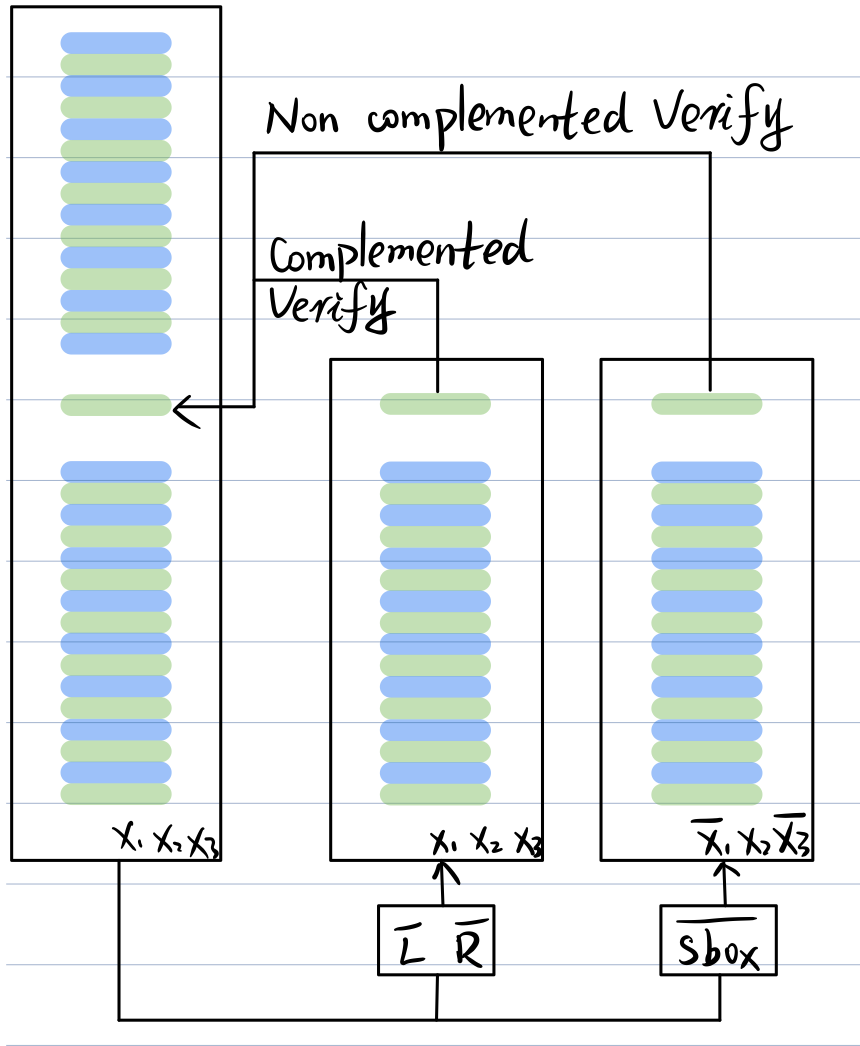 Non complemented Verify
Complemented
Verify
x₁ x₂ x₃
x₁ x₂ x₃
x̅₁ x₂ x̅₃
L̅ R̅
s̅b̅o̅x̅